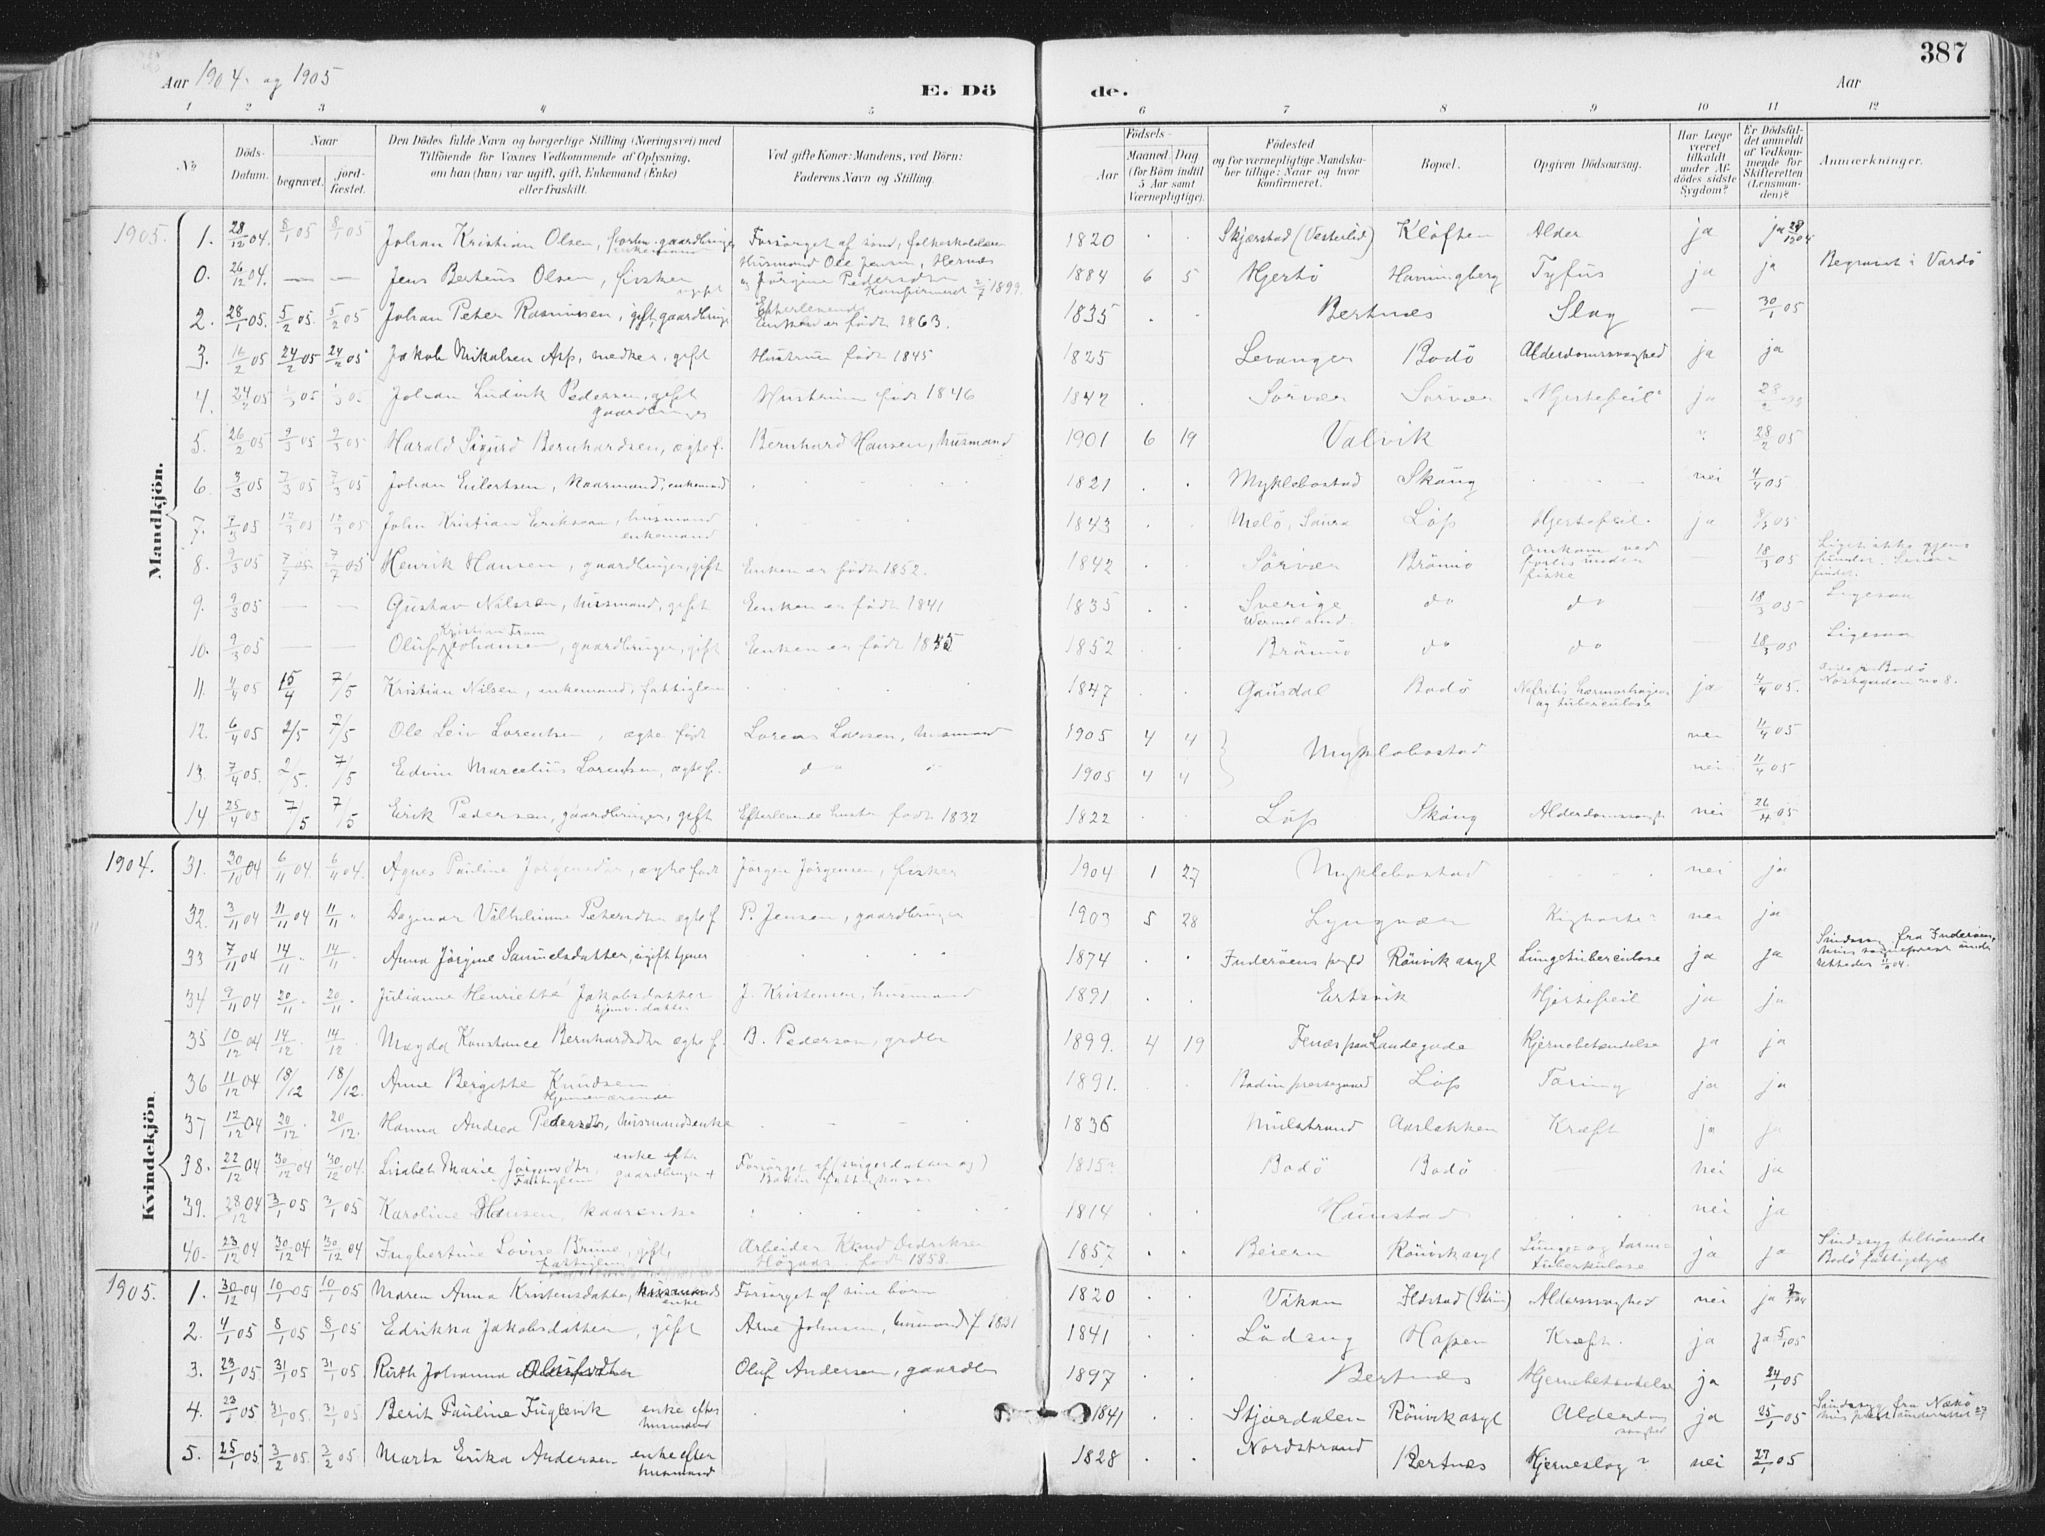 387
Aar 1904 og 1905
E. Dö de.
Aar
1 2 3 4 5 6 7 8 9 10 11 12
No
Döds-Datum.
Naar
begravet.
jord-fæstet.
Den Dödes fulde Navn og borgerlige Stilling (Næringsvei) med
Tilföiende for Voxnes Vedkommende af Oplysning,
om han (hun) var ugift, gift, Enkemand (Enke)
eller fraskilt.
Ved gifte Koner: Mandens, ved Börn:
Faderens Navn og Stilling.
Födsels-
Aar
Maaned Dag
(for Börn indtil
5 Aar samt
Værnepligtige).
Födested
og for værnepligtige Mandska-
ber tillige: Naar og hvor
konfirmeret.
Bopæl.
Opgiven Dödsaarsag.
Har Læge
været
tilkaldt
under Af-
dödes sidste
Sygdom?
Er Dödsfal-
det anmeldt
af Vedkom-
mende for
Skifteretten
(Lensman-
den)?
Anmærkninger.
Mandkjön.
1905. 1. 28/12 04. 8/1 05 8/1 05 Johan Kristian Olsen, gaardbruger enkemand Forsørget af sönd, 1820 Skjærstad (Vesterlid) Klöften Alder ja ja
0. 26/12 04. — — Jens Berteus Olsen, fisker ugift Husmand Ole Jensen, Hernæs og Jörgine Pedersdtr Konfirmeret 2/7 1899. 1884 6 5 Hjertö Havningberg Tyfus ja ja Begravet i Vardö
2. 28/1 05. 5/2 05. 5/2 05 Johan Peter Rasmussen, gift, gaardbruger Efterlevende Enken er födt 1863. 1835 Bertnæs Slag — 30/1 05
3. 16/2 05 24/2 05 24/2 05 Jakob Nikolsen Asp, snedker, gift Hustruen födt 1845 1825 Levanger Bodö Alderdomssvaghed ja ja
4. 24/2 05 1/3 05 1/3 05 Johan Ludvik Pedersen, gift gaardbruger Hustruen födt 1846 1842 Sörvær Sörvær "Hjertefeil" ja 28/2
5. 26/2 05 9/3 05 9/3 05 Harald Sigurd Bernhardsen, ægte f. Bernhard Hansen, husmand 1901 6 19 Valvik " 28/2 05
6. 3/3 05 7/3 05 7/3 05 Johan Eilertsen, kaarmand, enkemand 1821 Myklebostad Skaug nei 4/4 05
7. 7/3 05 12/3 05 12/3 05 John Kristian Eriksen, husmand enkemand 1843 Melö, Saura Löp Hjertefeil. ja 8/3 05
8. 9/3 05 7/7 05 7/7 05 Henrik Hansen, gaardbruger, gift Enken er födt 1852. 1842 Sörvær Brönnö omkom ved forlis under fiske — 18/3 05 Liget ikke gjenfundet. Senere fundet.
9. 9/3 05 — — Gustav Nilssen, husmand, gift Enken er födt 1841 1835 Sverige Wermeland do do 18/3 05 Ligesaa
10. 9/3 05 — — Oluf Kristian Fram Johansen, gaardbruger, gift Enken er födt 1855 1852 Brönnö do do — 18/3 05 Ligesaa
11. 4/4 05 15/4 7/5 Kristian Nilsen, enkemand, fattiglem 1847 Gausdal Bodö Nefritis hæmorhagica og tuberculose ja 4/4 05.
12. 6/4 05 2/5 7/5 Ole Leiv Lorentsen, ægte födt Lorens Larsen, husmand 1905 4 4 Myklebostad nei 11/4 05
13. 7/4 05. 2/5. 7/5 Edvin Marcelius Lorentsen, ægte f. do 1905 4 4 nei 11/4 05
14 25/4 05 7/5 7/5 Erik Pedersen, gaardbruger, gift Efterlevende hustru födt 1832 1822 Löp Skaug Alderdomssvagh. nei 26/4 05
Kvindekjön.
1904. 31. 30/10 04 6/11 04 6/11 04. Agnes Pauline Jörgensdtr, ægte födt Jörgen Jörgensen, fisker 1904 1 27 Myklebostad nei ja
32. 3/11 04 11/11 04 11/11 Dagmar Vilhelmine Petersdtr ægte f. P. Jensen, gaardbruger 1903 5 28 Lyngvær Kighoste nei ja
33 7/11 04 14/11 14/11 Anna Jörgine Samuelsdatter, ugift tjener 1874 Inderöens prgld Rönvik asyl Lungetuberculose ja ja Sindssyg fra Inderöen,
34 9/11 04 20/11 20/11 Julianne Henriette Jakobsdatter hjemv. datter J. Kristensen, husmand 1891 Ertsvik Hjertefeil ja ja
35 10/12 04 14/12 14/12 Magda Konstance Bernhardsdtr ægte f. B. Pedersen, grdbr 1899. 4 19 Fenes paa Landegode Hjernebetændelse ja ja
36 11/12 04 18/12 18/12. Anne Bergitte Knudsen Hjemmeværende 1891. Bodin prestegaard Löp Tæring ja ja
37 12/12 04 20/12 20/12. Hanna Andrea Pedersdtr, husmandsenke 1836 Mulstrand Aarlokken Kræft ja ja
38. 22/12 04 30/12 04 30/12 04. Lisabet Marie Jörgensdtr, enke efter gaardbruger Fattiglem Forsörget af Bodin fattigkasse 1815 Bodö Bodö nei ja
39. 28/12 04 3/1 05 3/1 05 Karoline Hansen, kaarenke 1814 Haunstad nei ja
40. 23/12 04 30/12 04 30/12 04 Ingbertine Lovise Brune, gift, fattiglem Arbeider Knud Didriksen Högaas födt 1858. 1857 Beiern Rönvik asyl Lunge- og tarmtuberkulose ja ja Sindssyg tilhörende Bodö fattigstyre
1905. 1. 30/12 04 10/1 05 10/1 05 Maren Anna Kristensdatter, husmands enke Forsörget af sine börn 1820 Vikan Ilstad Aldersvaghed nei ja
2. 4/1 05 8/1 05 8/1 05 Edrikka Jakobsdatter, gift Arne Johnsen, husmand f 1831 1841 Lödeng Hopen Kræft. ja ja 5/1 05
3. 23/1 05 31/1 05 31/1 05 Ruth Johanna Olufsdtr Oluf Andersen, gaardbr 1897 Bertnæs Hjernebetændelse ja 24/1 05
4. 23/1 05 31/1 05 31/1 05 Berit Pauline Fuglevik enke efter husmand 1841 Stjördalen Rönvik asyl Alderdomsvaghed ja 25/1 05
5. 25/1 05 3/2 05 3/2 05 Marta Erika Andersen enke efter husmand 1828 Nordstrand Bertnæs Hjerneslag? nei 27/1 05